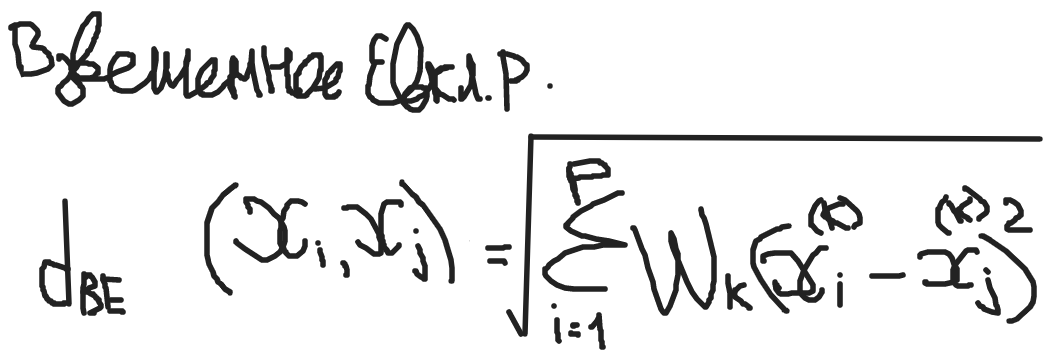 Взвешенное Евкл.р.
d_{BE} (x_i, x_j) = \sqrt{\sum_{i=1}^{P} W_k (x_i^{(k)} - x_j^{(k)})^2}